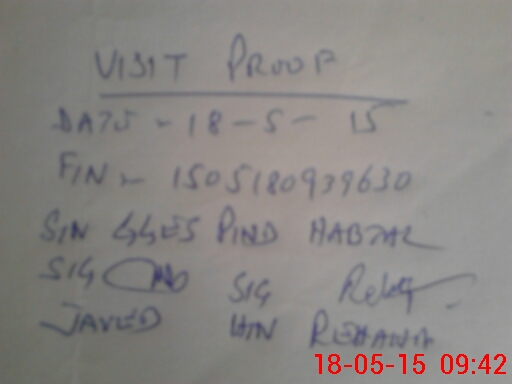 VISIT PROOF
DATE - 18-5-15
FIN - 1505180939630
SIN GGES PIND HABTAL
SIG SIG
JAVED HIN REHANA
18-05-15 09:42